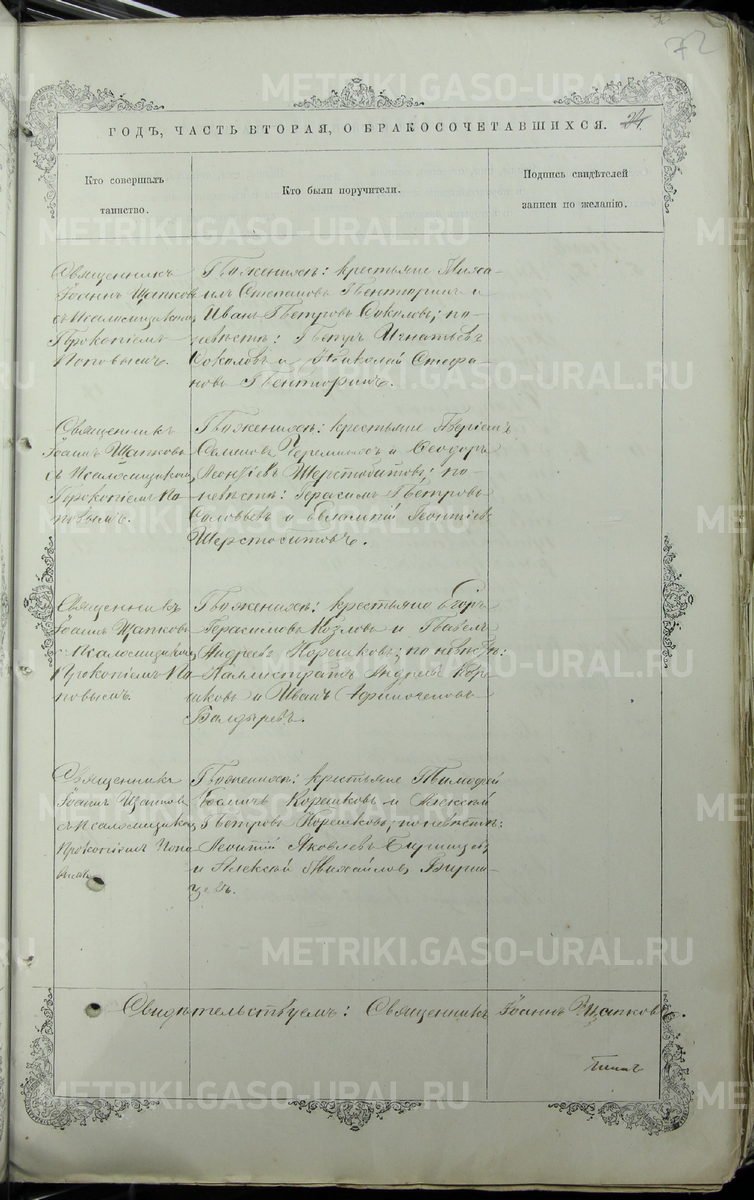 72
ГОДЪ, ЧАСТЬ ВТОРАЯ, О БРАКОСОЧЕТАВШИХСЯ.
Кто совершалъ
таинство.
Кто были поручители.
Подпись свидѣтелей
записи по желанію.
Священникъ
Іоаннъ Щапковъ
съ псаломщикомъ
Прокопіемъ
Поповымъ.
По женихѣ: крестьяне Миха-
илъ Степановъ и
Иванъ Петровъ Соколовъ; по
невѣстѣ: Петръ Игнатьевъ
Соколовъ и Николай Стефа-
новъ
Священникъ
Іоаннъ Щапковъ
съ псаломщикомъ
Прокопіемъ По-
повымъ.
По женихѣ: крестьяне
Семиновъ Черемныхъ и Ѳеодоръ
Леонтіевъ Шерстобитовъ; по
невѣстѣ: Герасимъ Петровъ
Соловьевъ и Евлампій Леонтіевъ
Шерстобитовъ.
Священникъ
Іоаннъ Щапковъ
съ псаломщикомъ
Прокопіемъ По-
повымъ.
По женихѣ: крестьяне Егоръ
Герасимовъ Козловъ и Павелъ
Андреевъ Корешковъ; по невѣстѣ:
Каллистратъ Андреевъ Коре-
шковъ и Иванъ
Балдыревъ.
Священникъ
Іоаннъ Щапковъ
съ псаломщикомъ
Прокопіемъ Попо-
вымъ
По женихѣ: крестьяне Тимофей
Корешковъ и Алексѣй
Петровъ Корешковъ; по невѣстѣ:
Леонтій Яковлевъ
и Алексѣй Михайловъ
Свидѣтельствуемъ: Священникъ Іоаннъ Щапковъ
METRIKI.GASO-URAL.RU